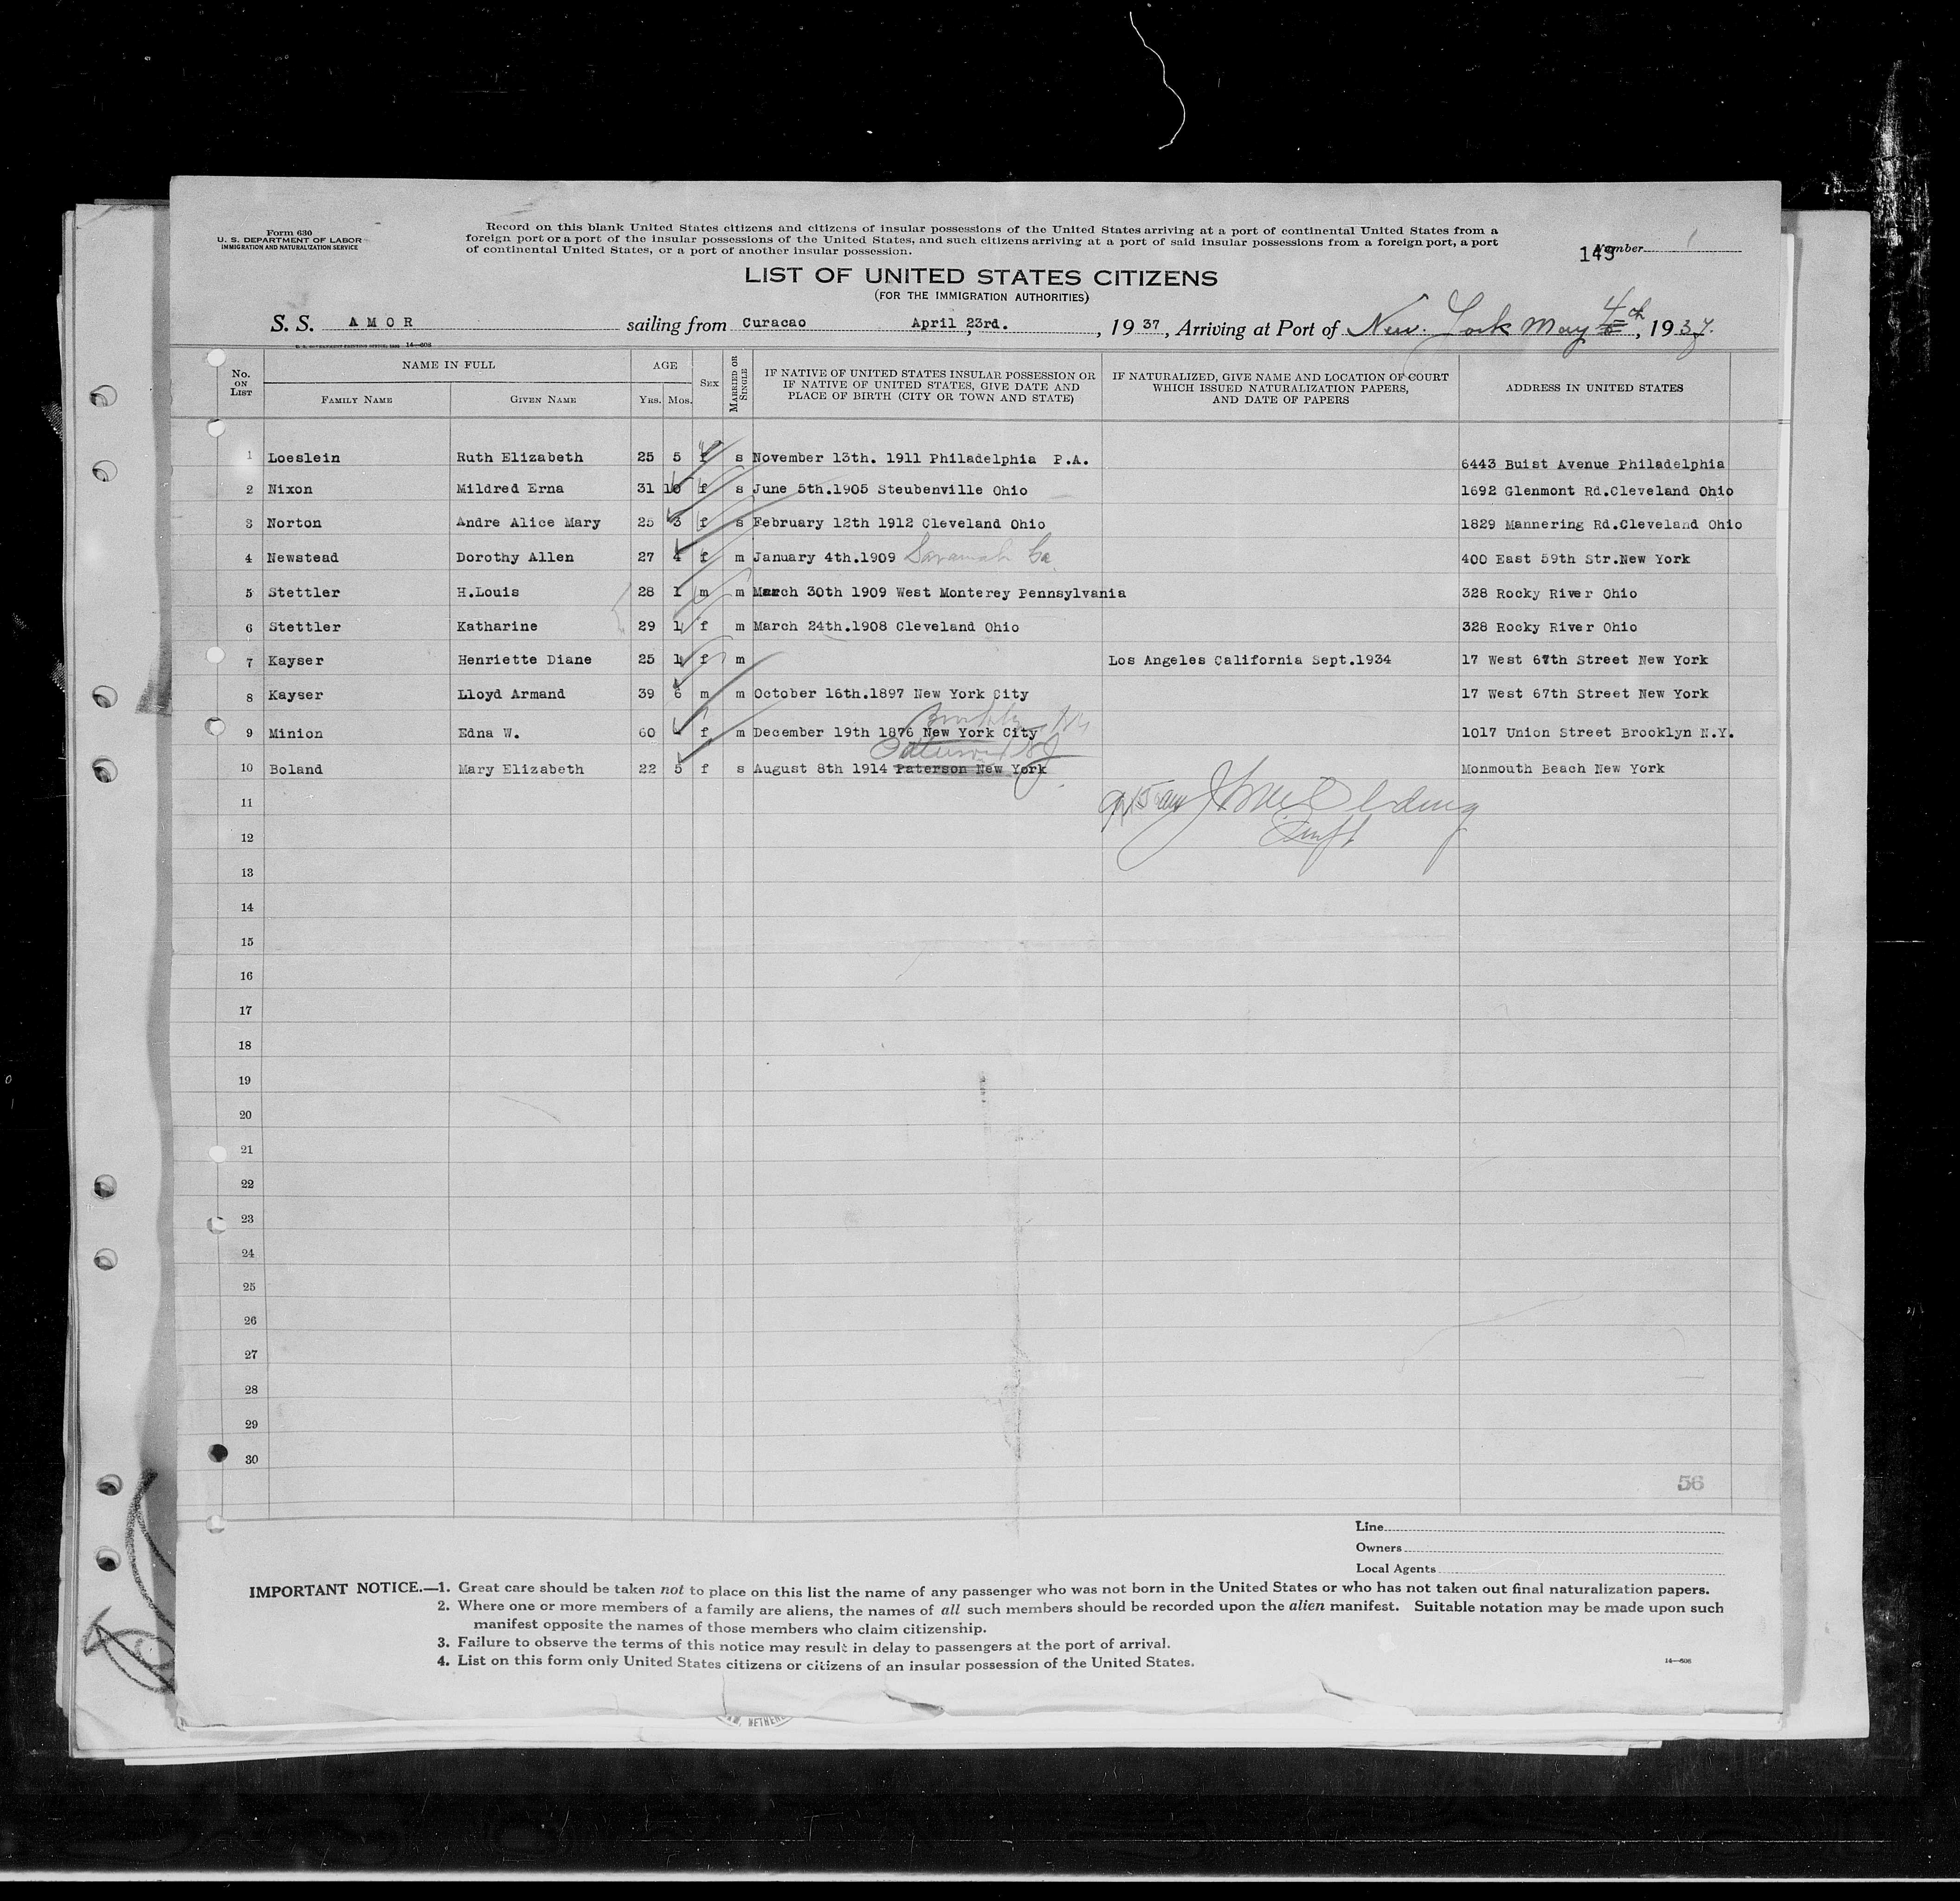 Form 630
U. S. DEPARTMENT OF LABOR
IMMIGRATION AND NATURALIZATION SERVICE
Record on this blank United States citizens and citizens of insular possessions of the United States arriving at a port of continental United States from a
foreign port or a port of the insular possessions of the United States, and such citizens arriving at a port of said insular possessions from a foreign port, a port
of continental United States, or a port of another insular possession.
Number 1
149
LIST OF UNITED STATES CITIZENS
(FOR THE IMMIGRATION AUTHORITIES)
S. S. AMOR sailing from Curacao April 23rd., 1937, Arriving at Port of New York May 4th, 1937.
No. ON LIST
NAME IN FULL
FAMILY NAME
GIVEN NAME
AGE
YRS. MOS.
SEX
MARRIED OR SINGLE
IF NATIVE OF UNITED STATES INSULAR POSSESSION OR
IF NATIVE OF UNITED STATES, GIVE DATE AND
PLACE OF BIRTH (CITY OR TOWN AND STATE)
IF NATURALIZED, GIVE NAME AND LOCATION OF COURT
WHICH ISSUED NATURALIZATION PAPERS,
AND DATE OF PAPERS
ADDRESS IN UNITED STATES
1 Loeslein Ruth Elizabeth 25 5 f s November 13th. 1911 Philadelphia P.A. 6443 Buist Avenue Philadelphia
2 Nixon Mildred Erna 31 10 f s June 5th.1905 Steubenville Ohio 1692 Glenmont Rd.Cleveland Ohio
3 Norton Andre Alice Mary 25 3 f s February 12th 1912 Cleveland Ohio 1829 Mannering Rd.Cleveland Ohio
4 Newstead Dorothy Allen 27 4 f m January 4th.1909 Savannah Ga. 400 East 59th Str.New York
5 Stettler H.Louis 28 1 m m March 30th 1909 West Monterey Pennsylvania 328 Rocky River Ohio
6 Stettler Katharine 29 1 f m March 24th.1908 Cleveland Ohio 328 Rocky River Ohio
7 Kayser Henriette Diane 25 1 f m Los Angeles California Sept.1934 17 West 67th Street New York
8 Kayser Lloyd Armand 39 6 m m October 16th.1897 New York City 17 West 67th Street New York
Brooklyn NY
9 Minion Edna W. 60 - f m December 19th 1876 New York City 1017 Union Street Brooklyn N.Y.
Paterson NJ
10 Boland Mary Elizabeth 22 5 f s August 8th 1914 Paterson New York Monmouth Beach New York
11
12
13
14
15
16
17
18
19
20
21
22
23
24
25
26
27
28
29
30
56
Line
Owners
Local Agents
IMPORTANT NOTICE.—1. Great care should be taken not to place on this list the name of any passenger who was not born in the United States or who has not taken out final naturalization papers.
2. Where one or more members of a family are aliens, the names of all such members should be recorded upon the alien manifest. Suitable notation may be made upon such
manifest opposite the names of those members who claim citizenship.
3. Failure to observe the terms of this notice may result in delay to passengers at the port of arrival.
4. List on this form only United States citizens or citizens of an insular possession of the United States.
14—608